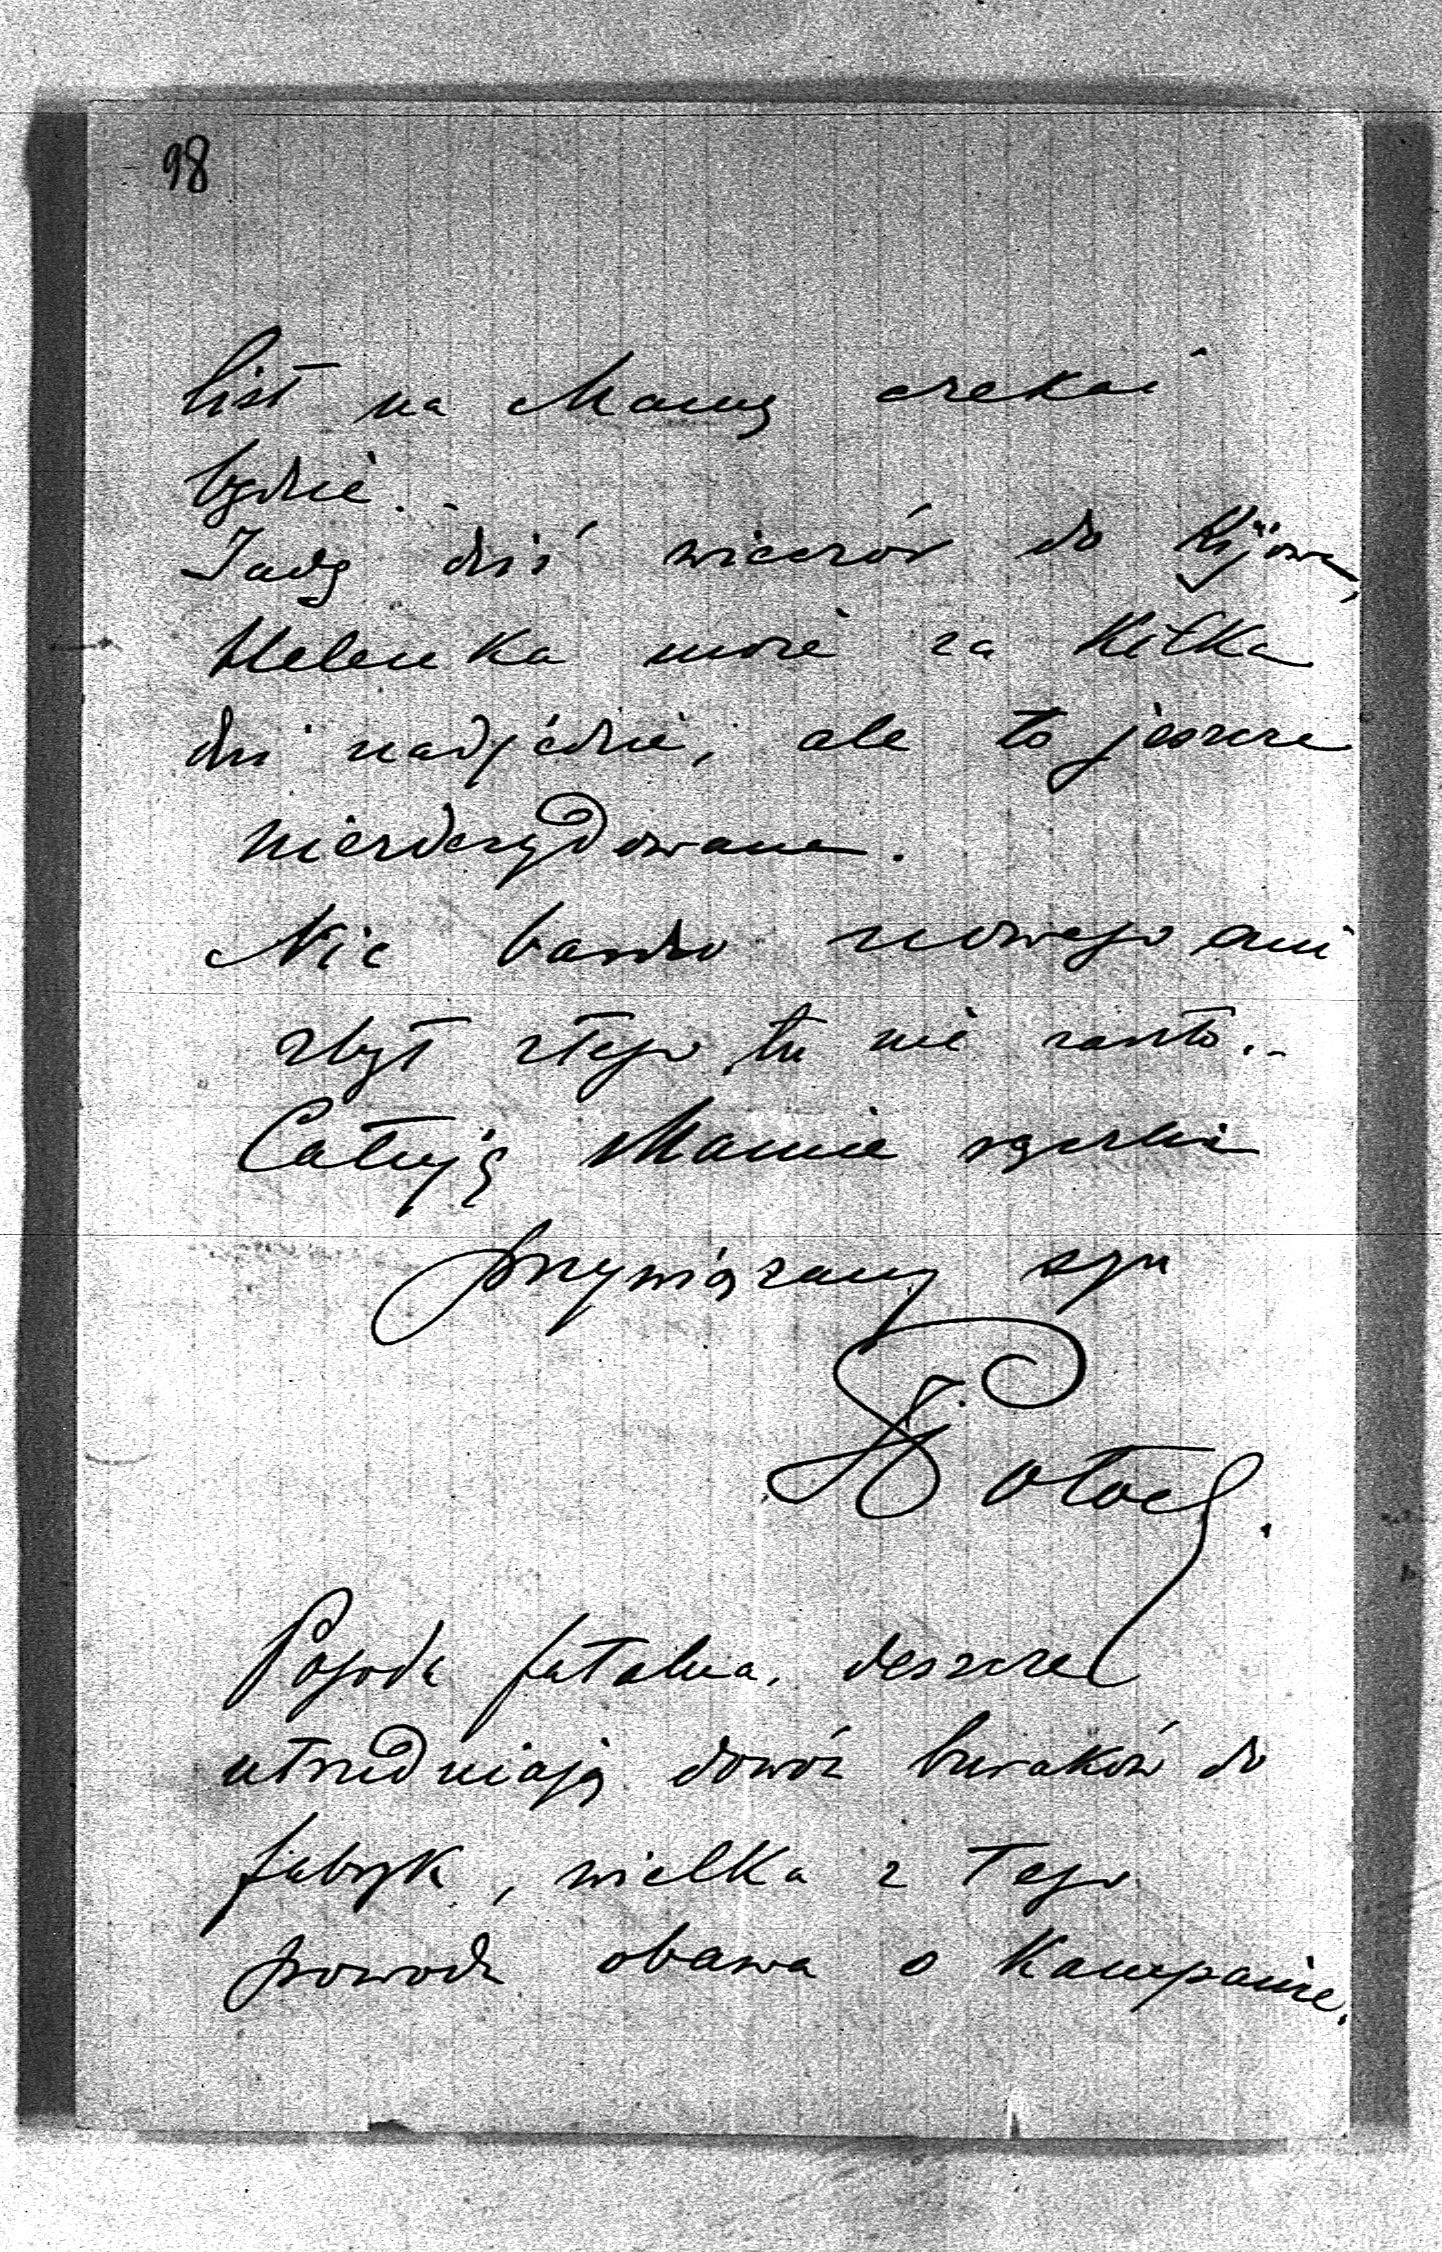 98
list na Mamę czekać
będzie.
Jadę dziś wieczór do Kijowa,
Helenka może za kilka
dni nadjedzie, ale to jeszcze
niezdecydowane.
Nic bardzo nowego ani
zbyt złego tu nie zaszło.
Całuję Mamie rączki
przywiązany syn
FPotocki.
Pogoda fatalna, deszcze
utrudniają dowóz buraków do
fabryk, wielka z tego
powodu obawa o Kampanie.